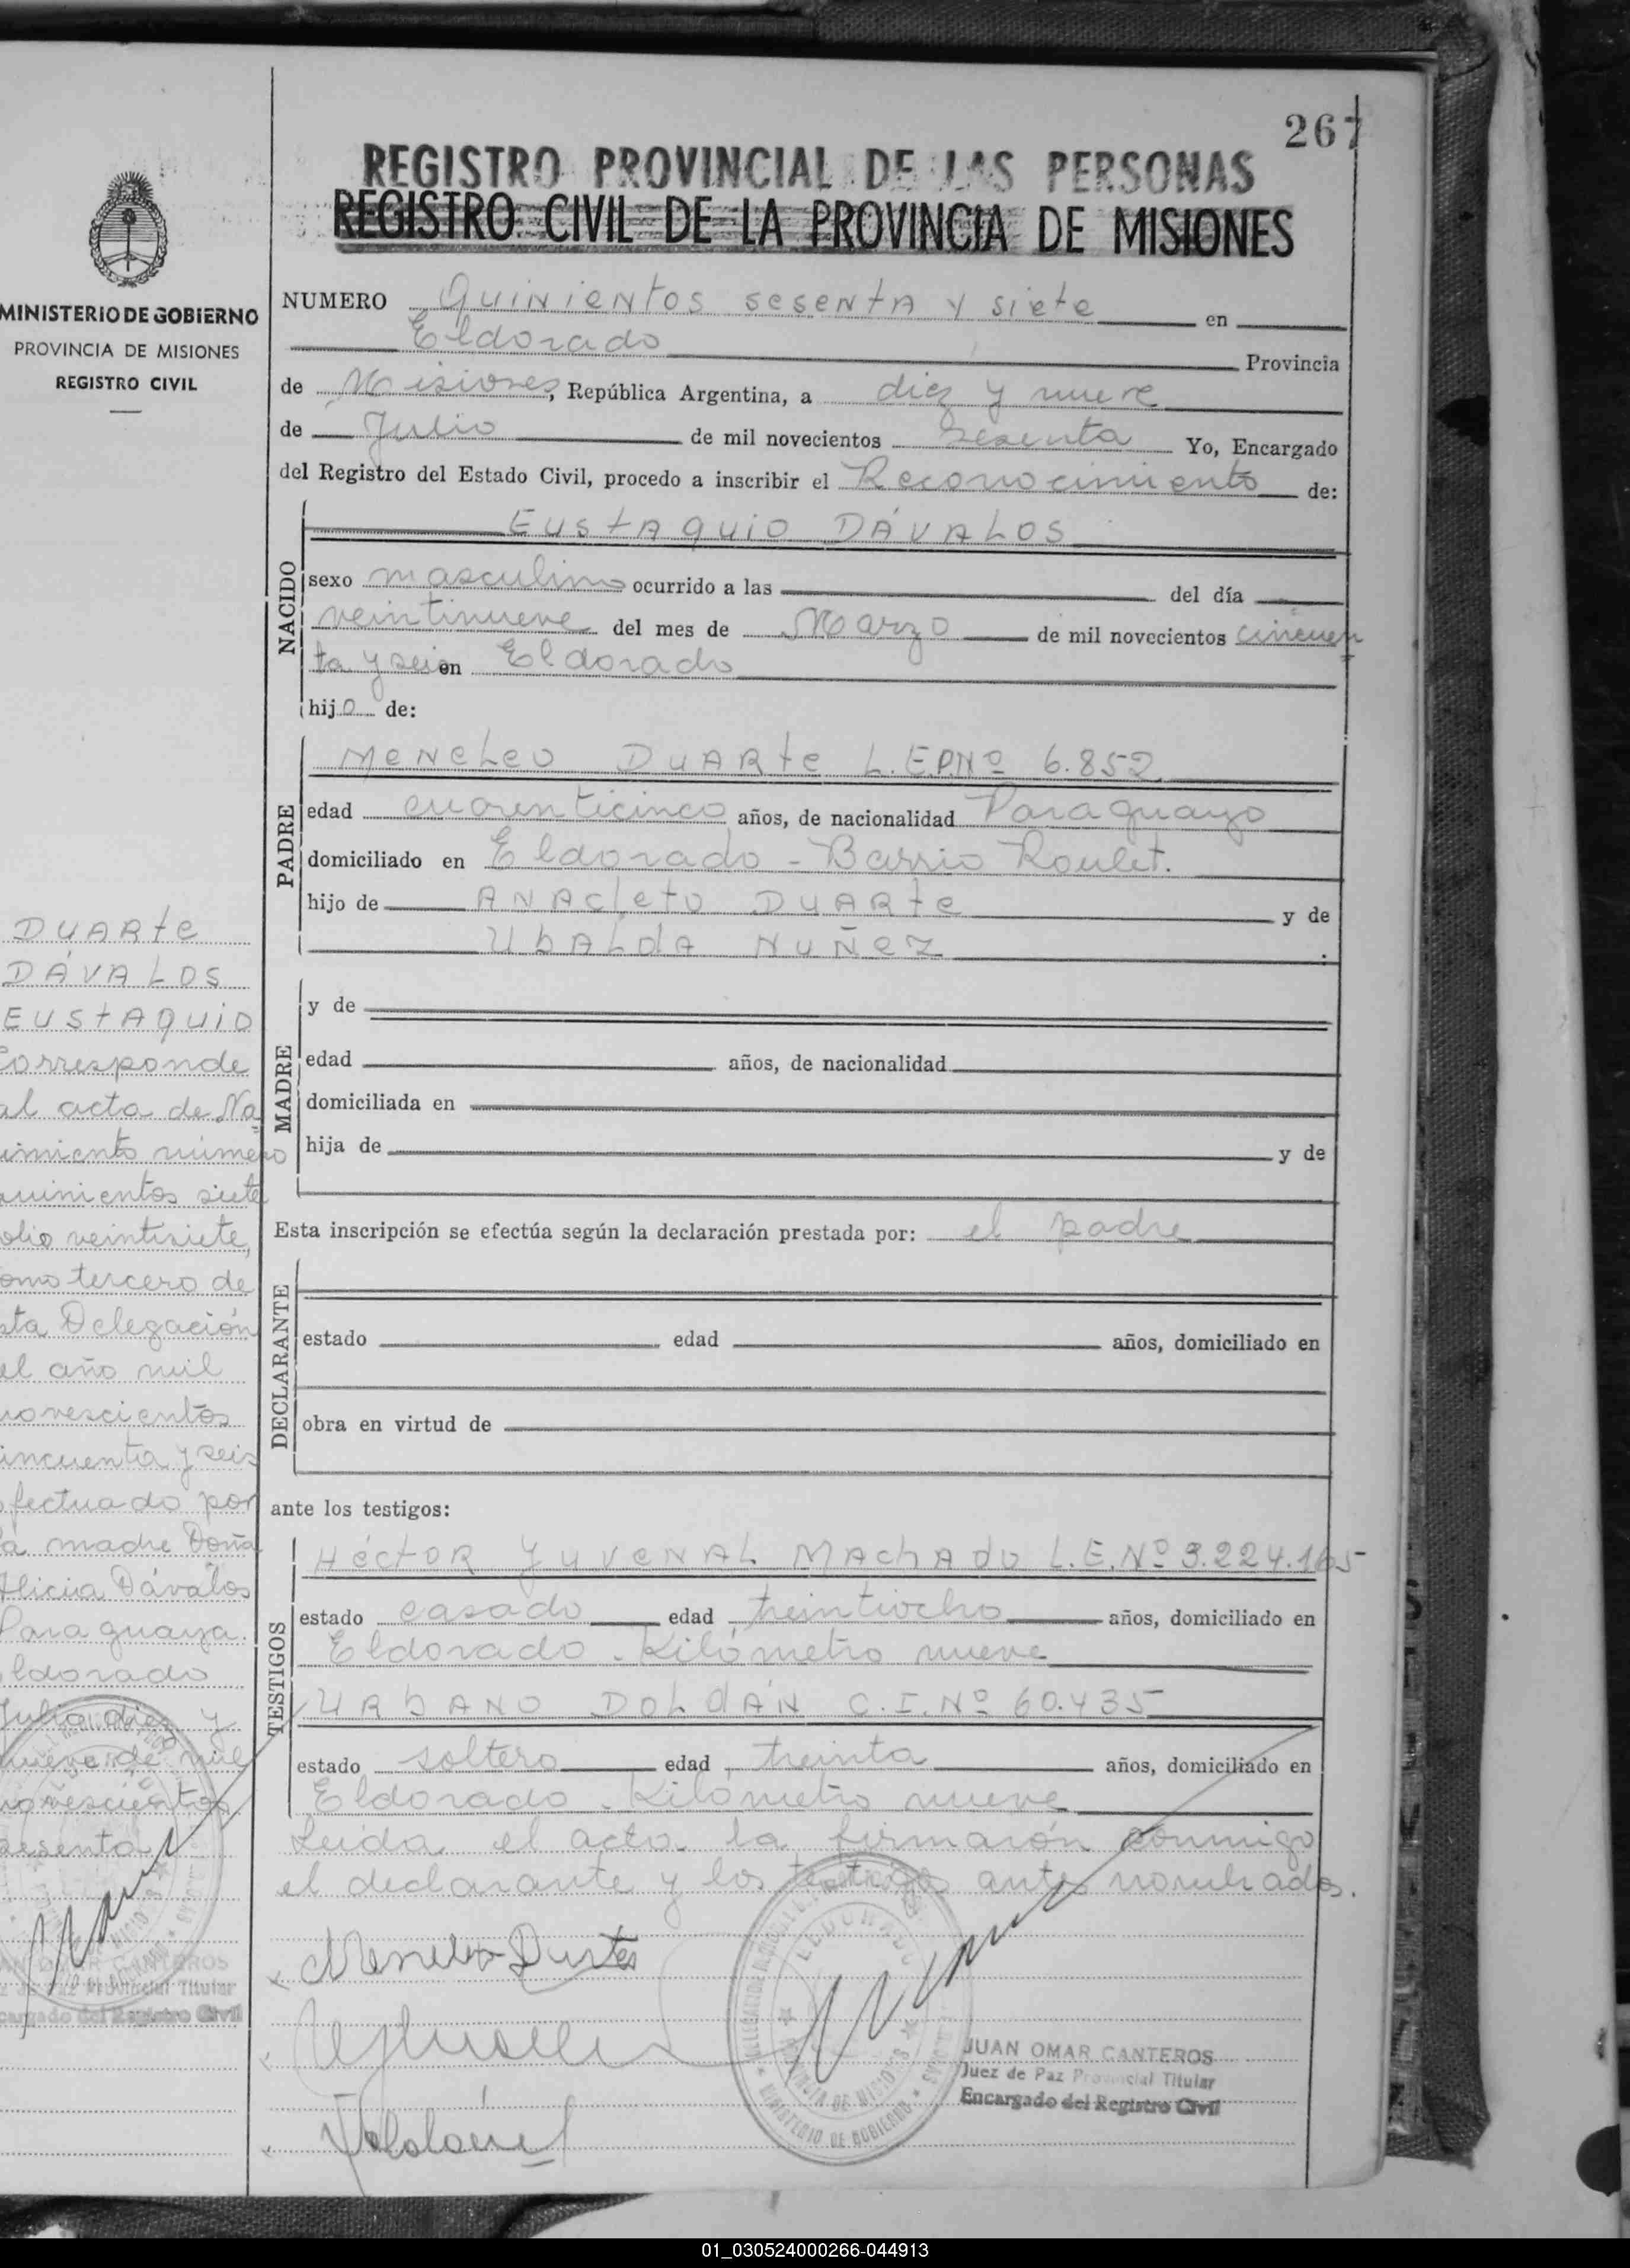 267
REGISTRO PROVINCIAL DE LAS PERSONAS
REGISTRO CIVIL DE LA PROVINCIA DE MISIONES
MINISTERIO DE GOBIERNO
PROVINCIA DE MISIONES
REGISTRO CIVIL
NUMERO Quinientos sesenta y siete en
Eldorado Provincia
de Misiones, República Argentina, a diez y nueve
de Julio de mil novecientos sesenta Yo, Encargado
del Registro del Estado Civil, procedo a inscribir el Reconocimiento de:
EUSTAQUIO DÁVALOS
NACIDO
sexo masculino ocurrido a las del día
veintinueve del mes de Marzo de mil novecientos cincuen
ta y seis en Eldorado
hijo de:
PADRE
MENELEO DUARTE L.E.P.Nº 6.852
edad cuarenticinco años, de nacionalidad Paraguayo
domiciliado en Eldorado - Barrio Roulet.
hijo de ANACLETO DUARTE y de
UBALDA NUÑEZ
MADRE
y de
edad años, de nacionalidad
domiciliada en
hija de y de
Esta inscripción se efectúa según la declaración prestada por: el padre
DECLARANTE
estado edad años, domiciliado en
obra en virtud de
ante los testigos:
TESTIGOS
HÉCTOR YUVENAL MACHADO L.E.Nº 3.224.165
estado casado edad treintiocho años, domiciliado en
Eldorado - Kilómetro nueve
URBANO DOLDÁN C.I.Nº 60.435
estado soltero edad treinta años, domiciliado en
Eldorado - Kilómetro nueve
Leida el acta la firmarón conmigo
el declarante y los testigos antes nombrados.
Meneleo Duarte
JUAN OMAR CANTEROS
Juez de Paz Provincial Titular
Encargado del Registro Civil
MINISTERIO DE GOBIERNO
ELDORADO
DUARTE
DÁVALOS
EUSTAQUIO
Corresponde
al acta de Na
cimiento número
quinientos siete
olio veintisiete,
omo tercero de
sta Delegación
el año mil
novescientos
incuenta y seis
fectuado por
la madre Doña
Alicia Dávalos
Paraguaya.
ldorado
Julio diez y
nueve de mil
novescientos
sesenta
OMAR CANTEROS
Paz Provincial Titular
cargado del Registro Civil
01_030524000266-044913